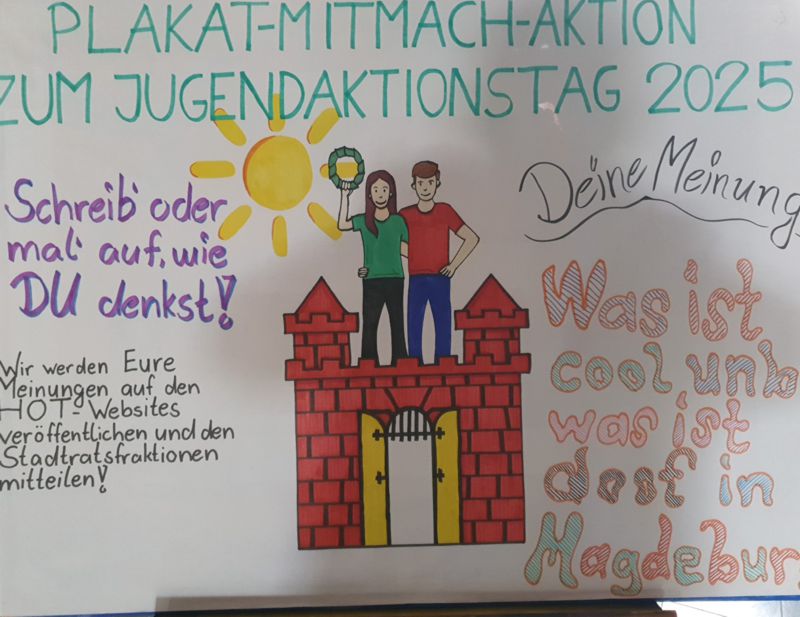 PLAKAT-MITMACH-AKTION
ZUM JUGENDAKTIONSTAG 2025
Schreib' oder
mal' auf, wie
DU denkst!
Wir werden Eure
Meinungen auf den
HOT-Websites
veröffentlichen und den
Stadtratsfraktionen
mitteilen!
Deine Meinung
Was ist
cool und
was ist
doof in
Magdebur